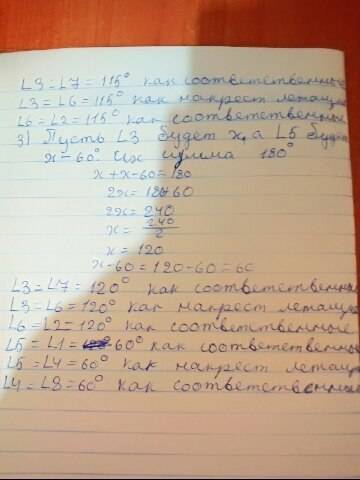 L3=L7=115° как соответственные
L3=L6=115° как накрест лежащие
L6=L2=115° как соответственные
3) Пусть L3 будет x, а L5 будет
x-60°. Их сумма 180°
x+x-60=180
2x=180+60
2x=240
x=240/2
x=120
x-60=120-60=60
L3=L7=120° как соответственные
L3=L6=120° как накрест лежащие
L6=L2=120° как соответственные
L5=L1=60° как соответственные
L5=L4=60° как накрест лежащие
L4=L8=60° как соответственные